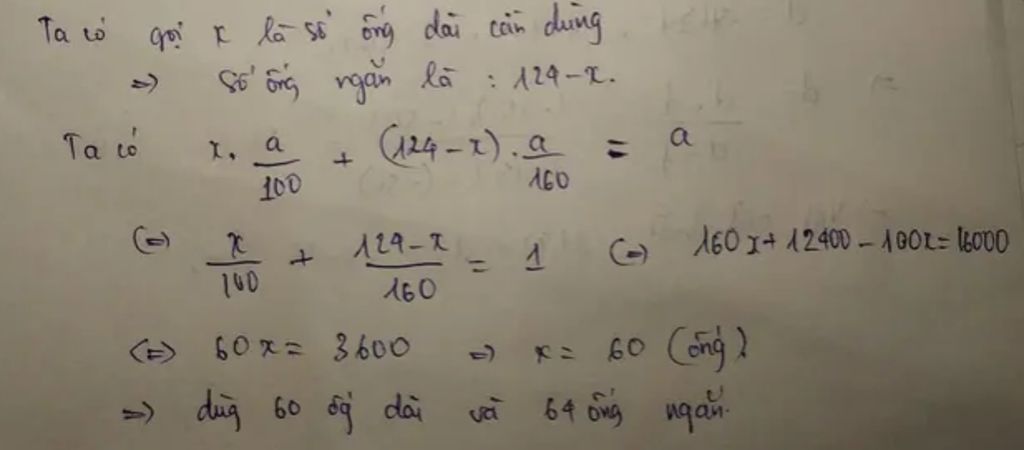 Ta có gọi x là số ống dài cần dùng
=> số ống ngắn là : 124 - x.
Ta có x . a/100 + (124 - x) . a/160 = a
(=) x/100 + 124 - x/160 = 1 (=) 160x + 12400 - 100x = 16000
(=) 60x = 3600 => x = 60 (ống)
=> dùg 60 ốg dài và 64 ống ngắn.